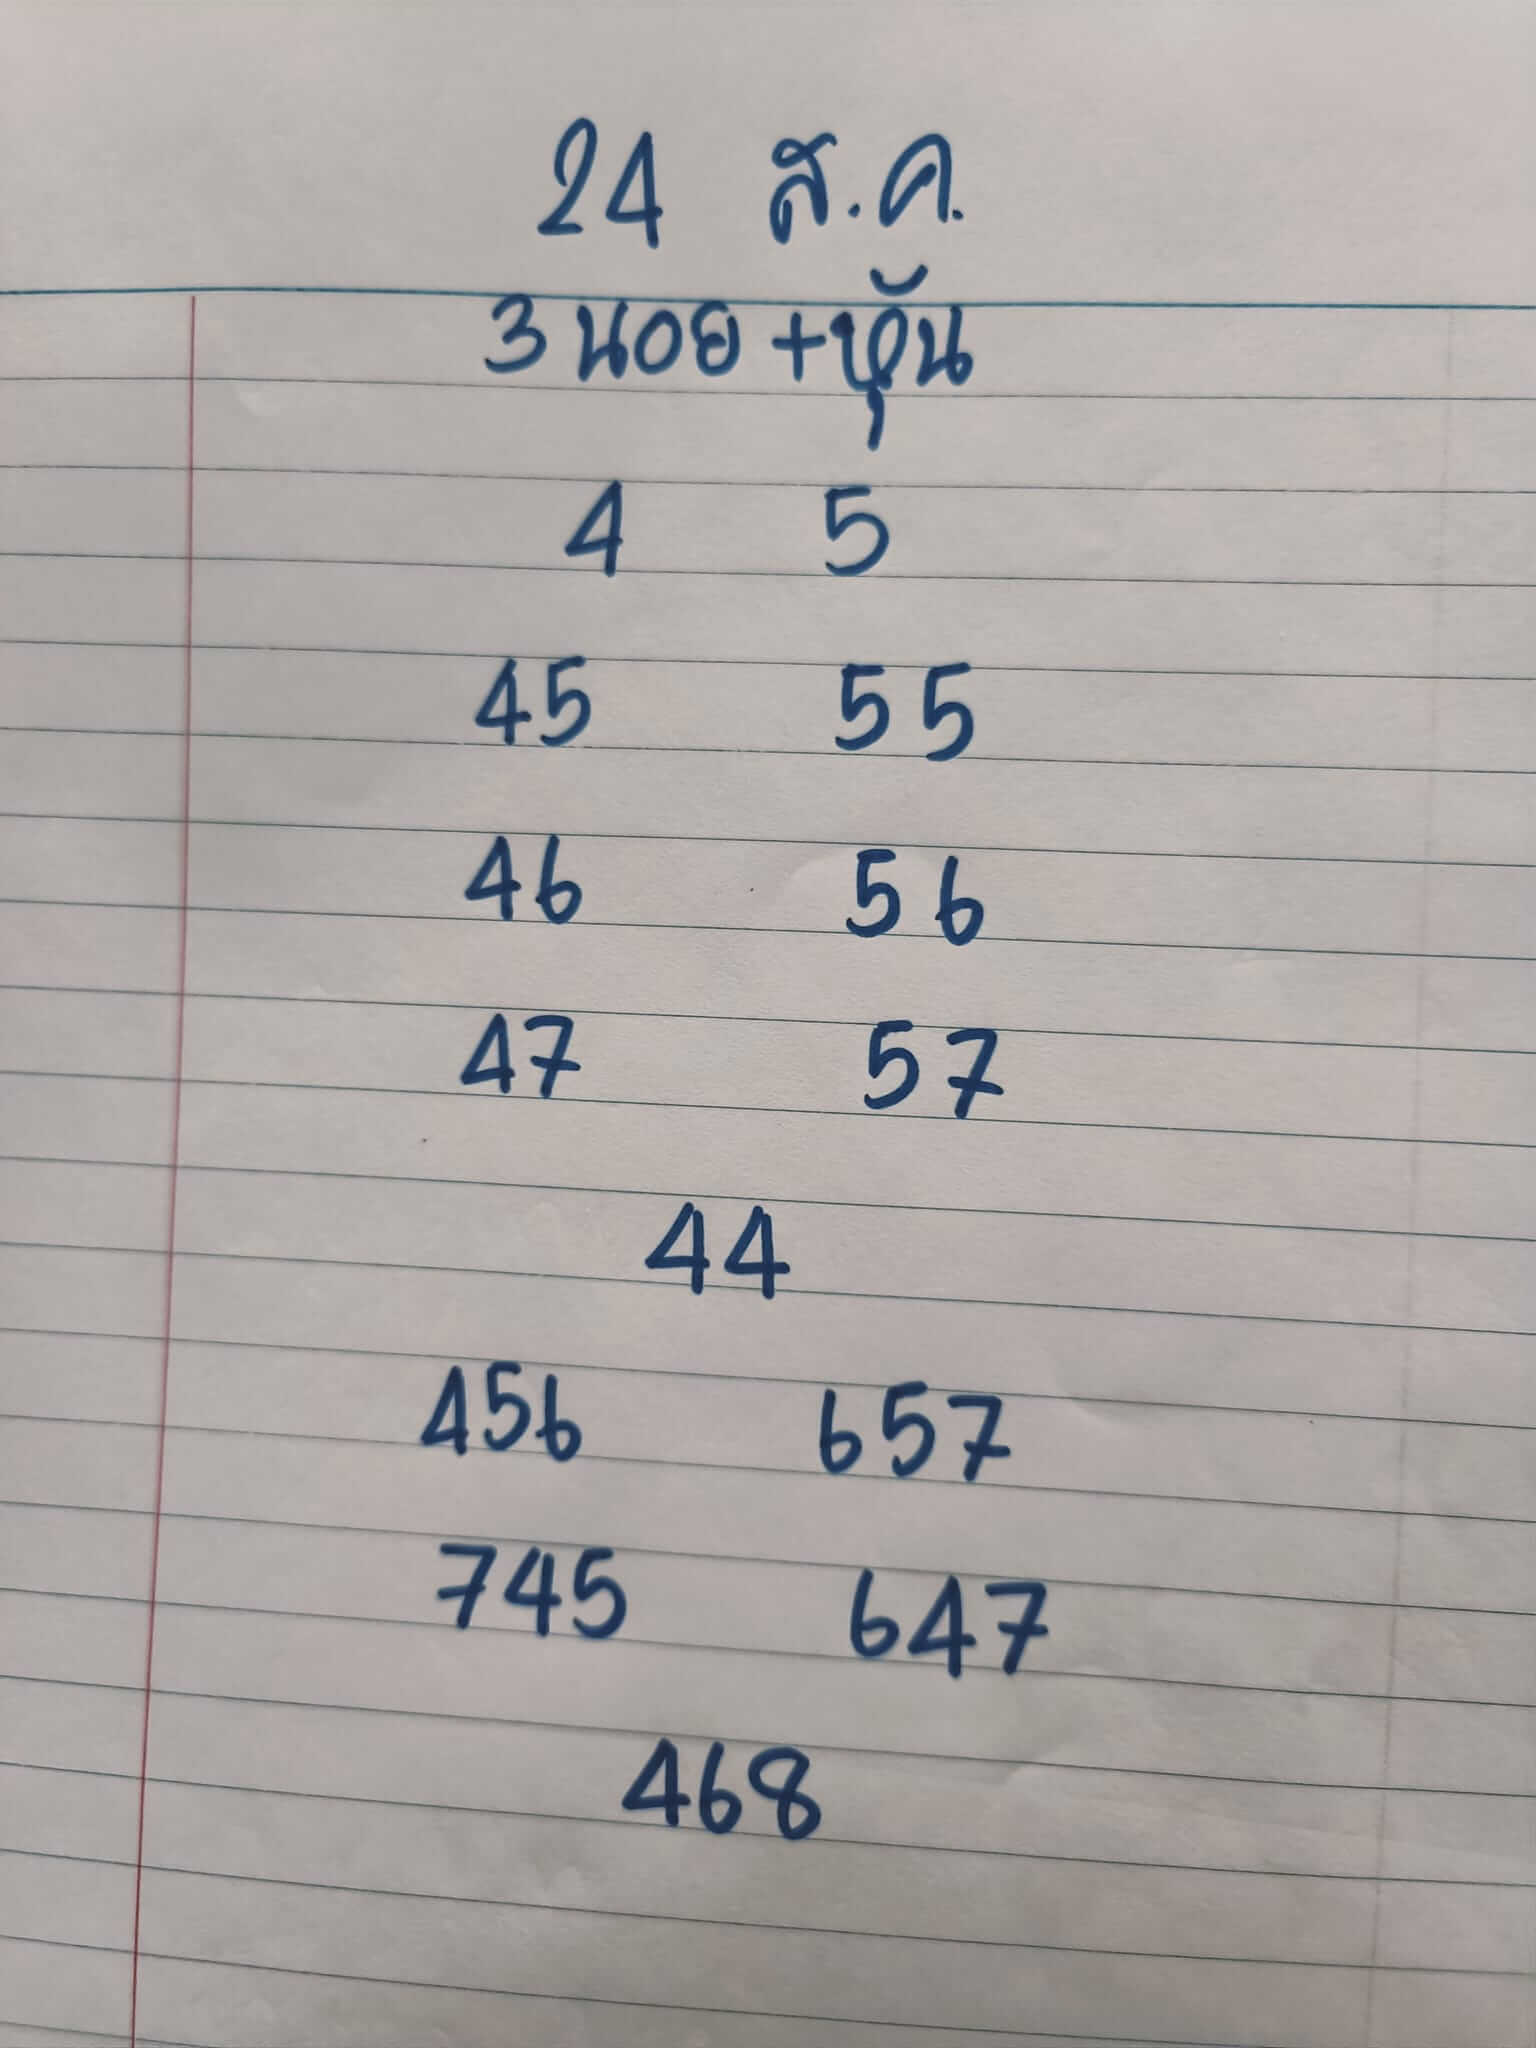 24 ส.ค.
3 นอย + หุ้น
4 5
45 55
46 56
47 57
44
456 657
745 647
468